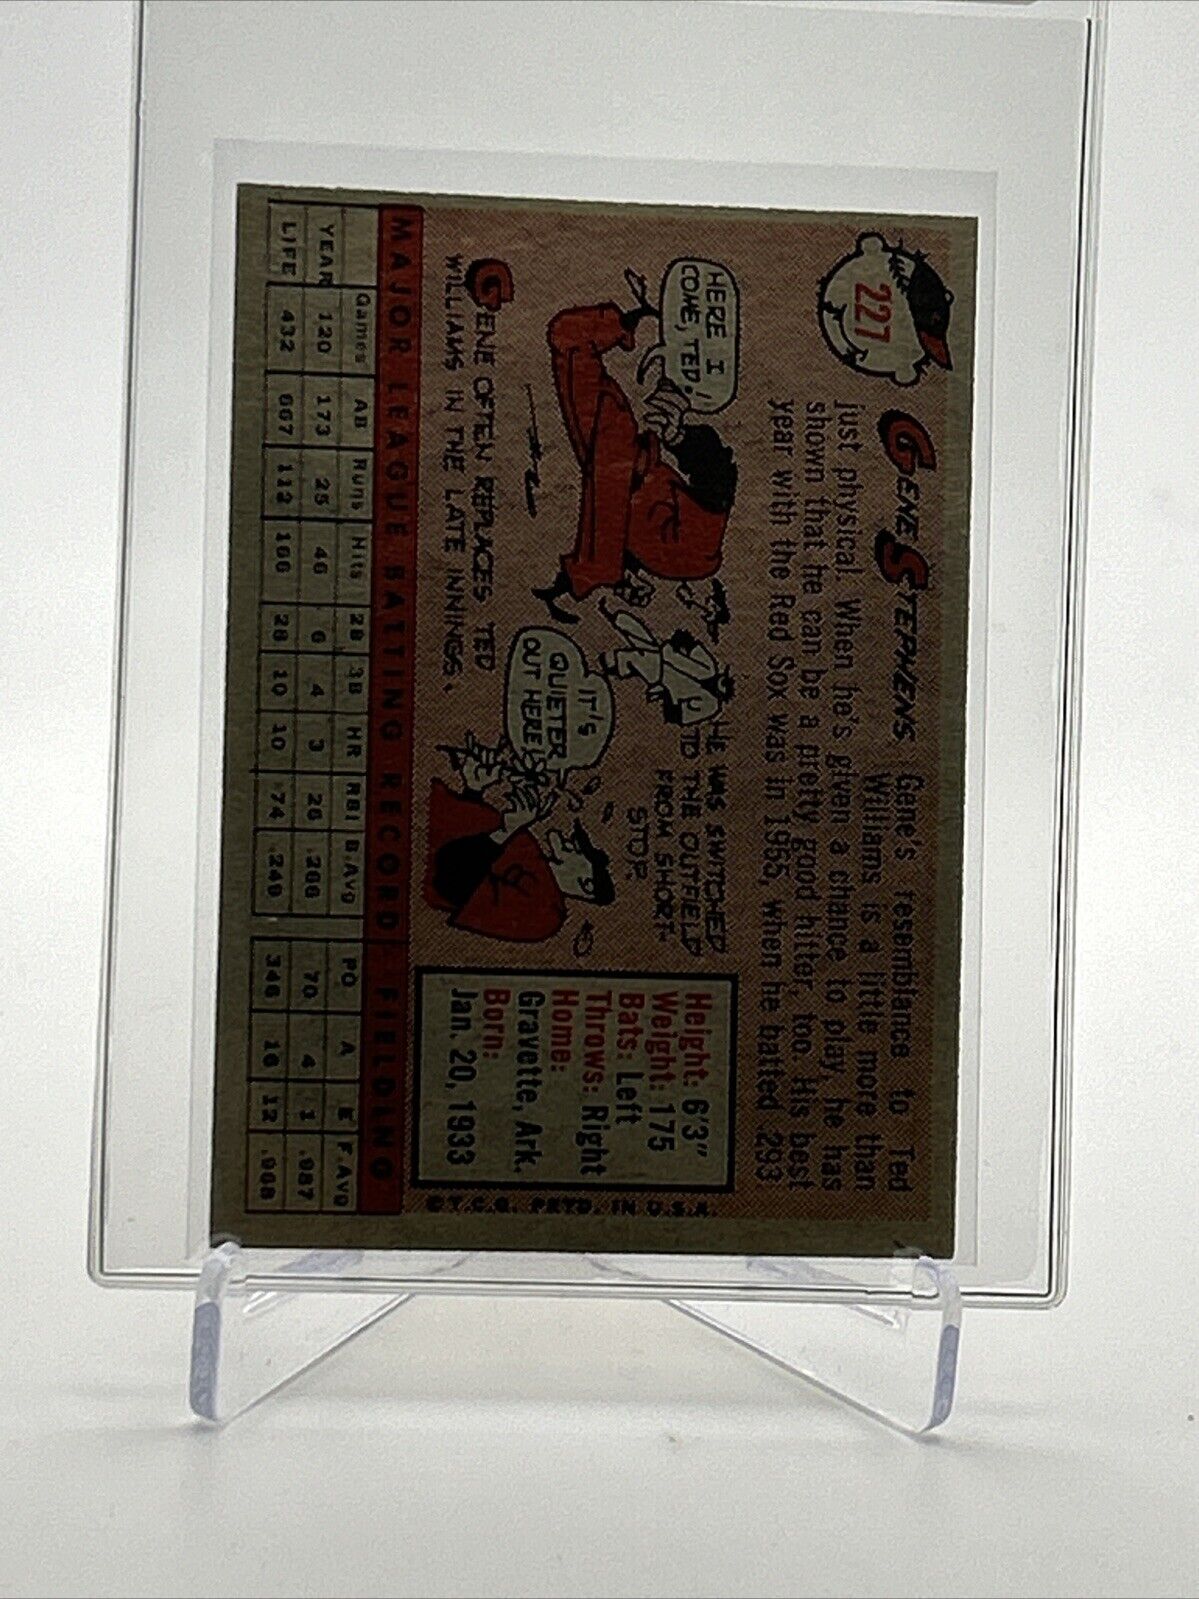 227
GENE STEPHENS
Gene's resemblance to Ted
Williams is a little more than
just physical. When he's given a chance to play, he has
shown that he can be a pretty good hitter, too. His best
year with the Red Sox was in 1955, when he batted .293.
HERE I
COME, TED!
GENE OFTEN REPLACES TED
WILLIAMS IN THE LATE INNINGS.
HE WAS SWITCHED
TO THE OUTFIELD
FROM SHORT-
STOP.
IT'S
QUIETER
OUT HERE
Height: 6'3"
Weight: 175
Bats: Left
Throws: Right
Home:
Gravette, Ark.
Born:
Jan. 20, 1933
MAJOR LEAGUE BATTING RECORD FIELDING
Games AB Runs Hits 2B 3B HR RBI B.Avg PO A E F.Avg
YEAR 120 173 25 46 6 4 3 26 .266 70 4 1 .987
LIFE 432 667 112 166 28 10 10 74 .249 346 16 12 .968